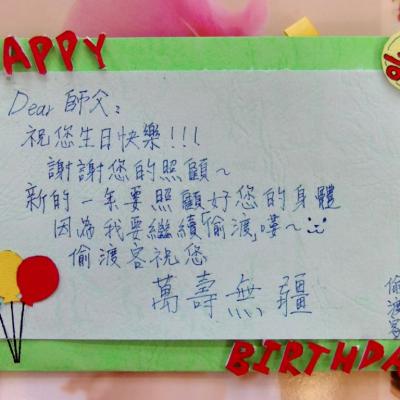 HAPPY
Dear 師父：
祝您生日快樂!!!
謝謝您的照顧～
新的一年要照顧好您的身體
因為我要繼續「偷渡」嘍～
偷渡客祝您
萬壽無疆
偷渡客
BIRTHDA